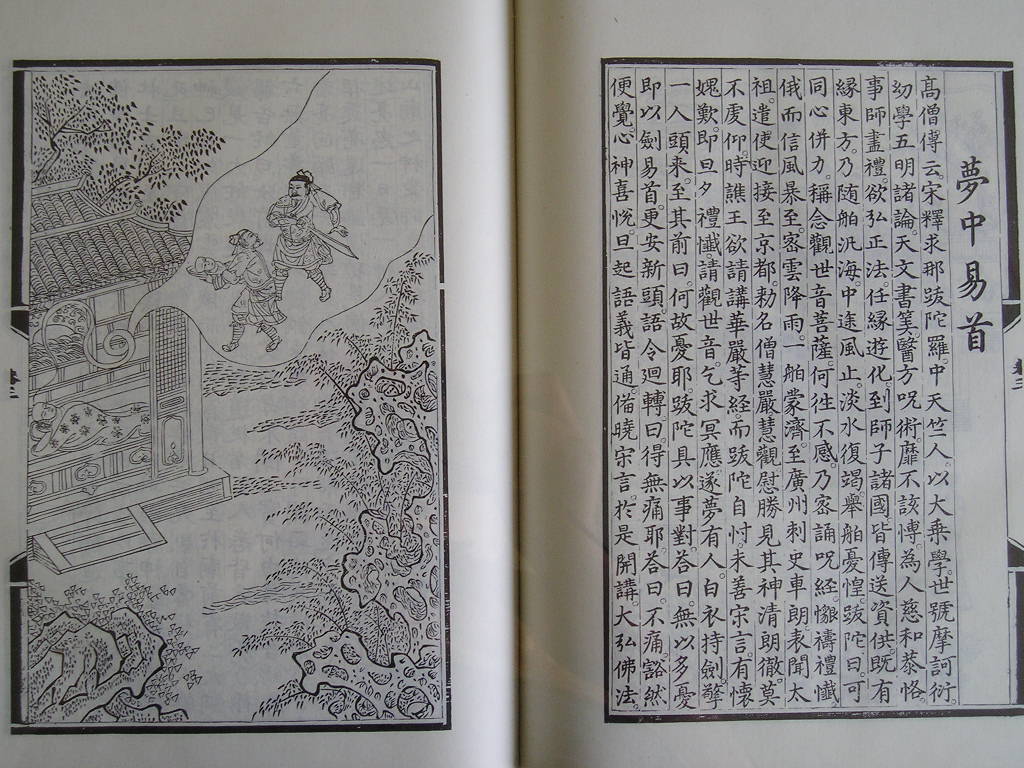 夢中易首
高僧傳云。宋釋求那跋陀羅中天竺人。以大乗學。世號摩訶衍
幼學五明諸論。天文書筭。醫方呪術。靡不該博。為人慈和恭恪
事師盡禮。欲弘正法。任緣遊化。到師子諸國。皆傳送資供。旣有
緣東方。乃随舶汎海。中途風止。淡水復竭。舉舶憂惶。跋陀曰。可
同心併力。稱念觀世音菩薩。何徃不感。乃宻誦呪經。懺禱禮懺
俄而信風暴至。宻雲降雨。一舶蒙濟。至廣州刺史車朗表聞太
祖。遣使迎接至京都。勑名僧慧嚴慧觀慰勝。見其神清朗徹。莫
不虔仰。時譙王欲請講華嚴等經。而跋陀自忖未善宋言。有懷
媿歎。即旦夕禮懺。請觀世音。乞求冥應。遂夢有人。白衣持劍。擎
一人頭來。至其前曰。何故憂耶。跋陀具以事對。答曰。無以多憂
即以劍易首。更安新頭。語令迴轉曰。得無痛耶。答曰。不痛。豁然
便覺。心神喜悅。旦起語義皆通。備曉宋言。扵是開講。大弘佛法。
卷二